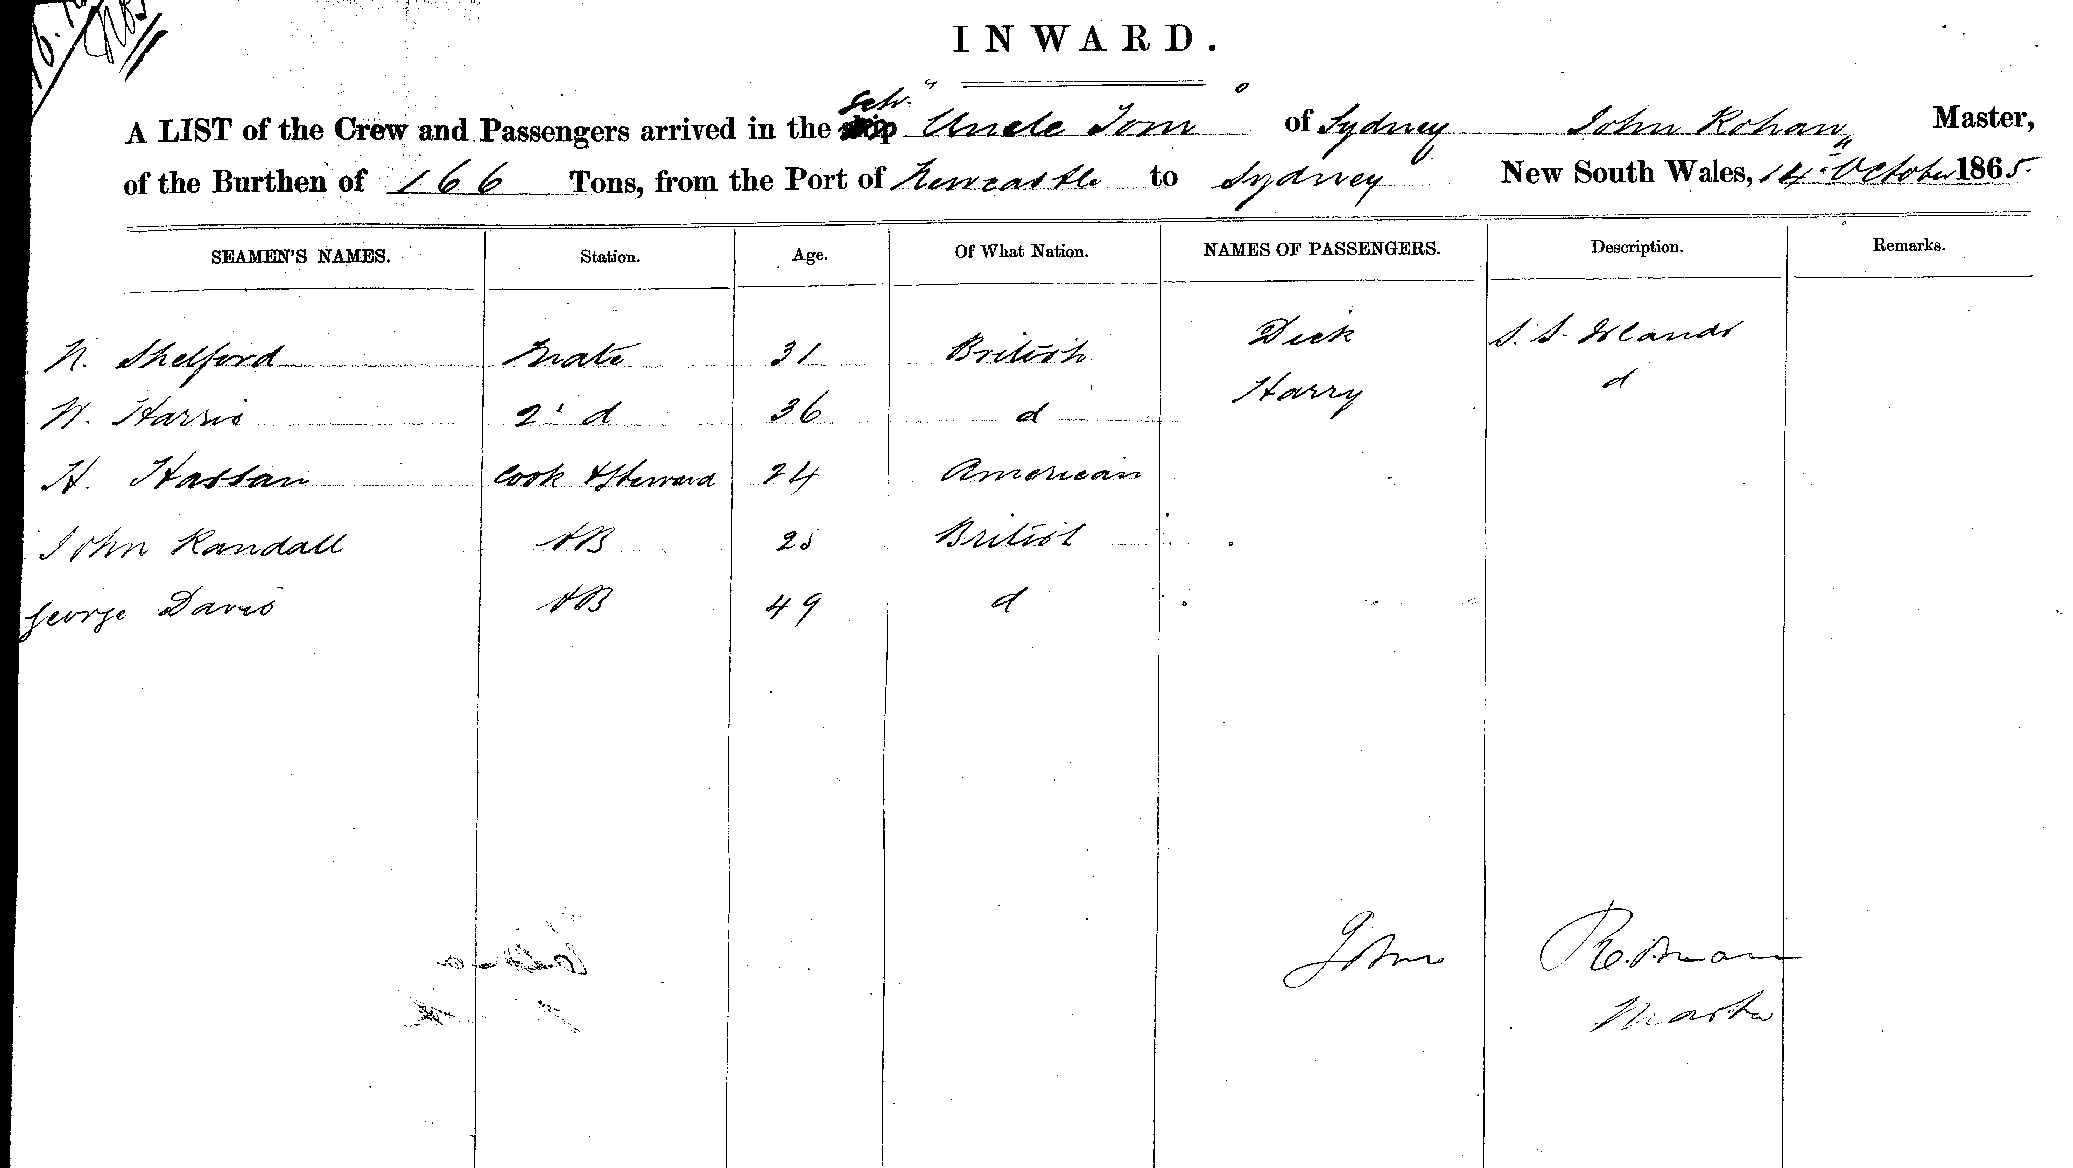 INWARD.
A LIST of the Crew and Passengers arrived in the Sch. "Uncle Tom" of Sydney John Rohan Master,
of the Burthen of 166 Tons, from the Port of Newcastle to Sydney New South Wales, 14 October 1865.
SEAMEN'S NAMES. Station. Age. Of What Nation. NAMES OF PASSENGERS. Description. Remarks.
N. Shelford Mate 31 British Dick S. S. Islands
W. Harris 2d 36 d Harry d
H. Hassan Cook & Steward 24 American
John Randall AB 25 British
George Davis AB 49 d
John Rohan
Master